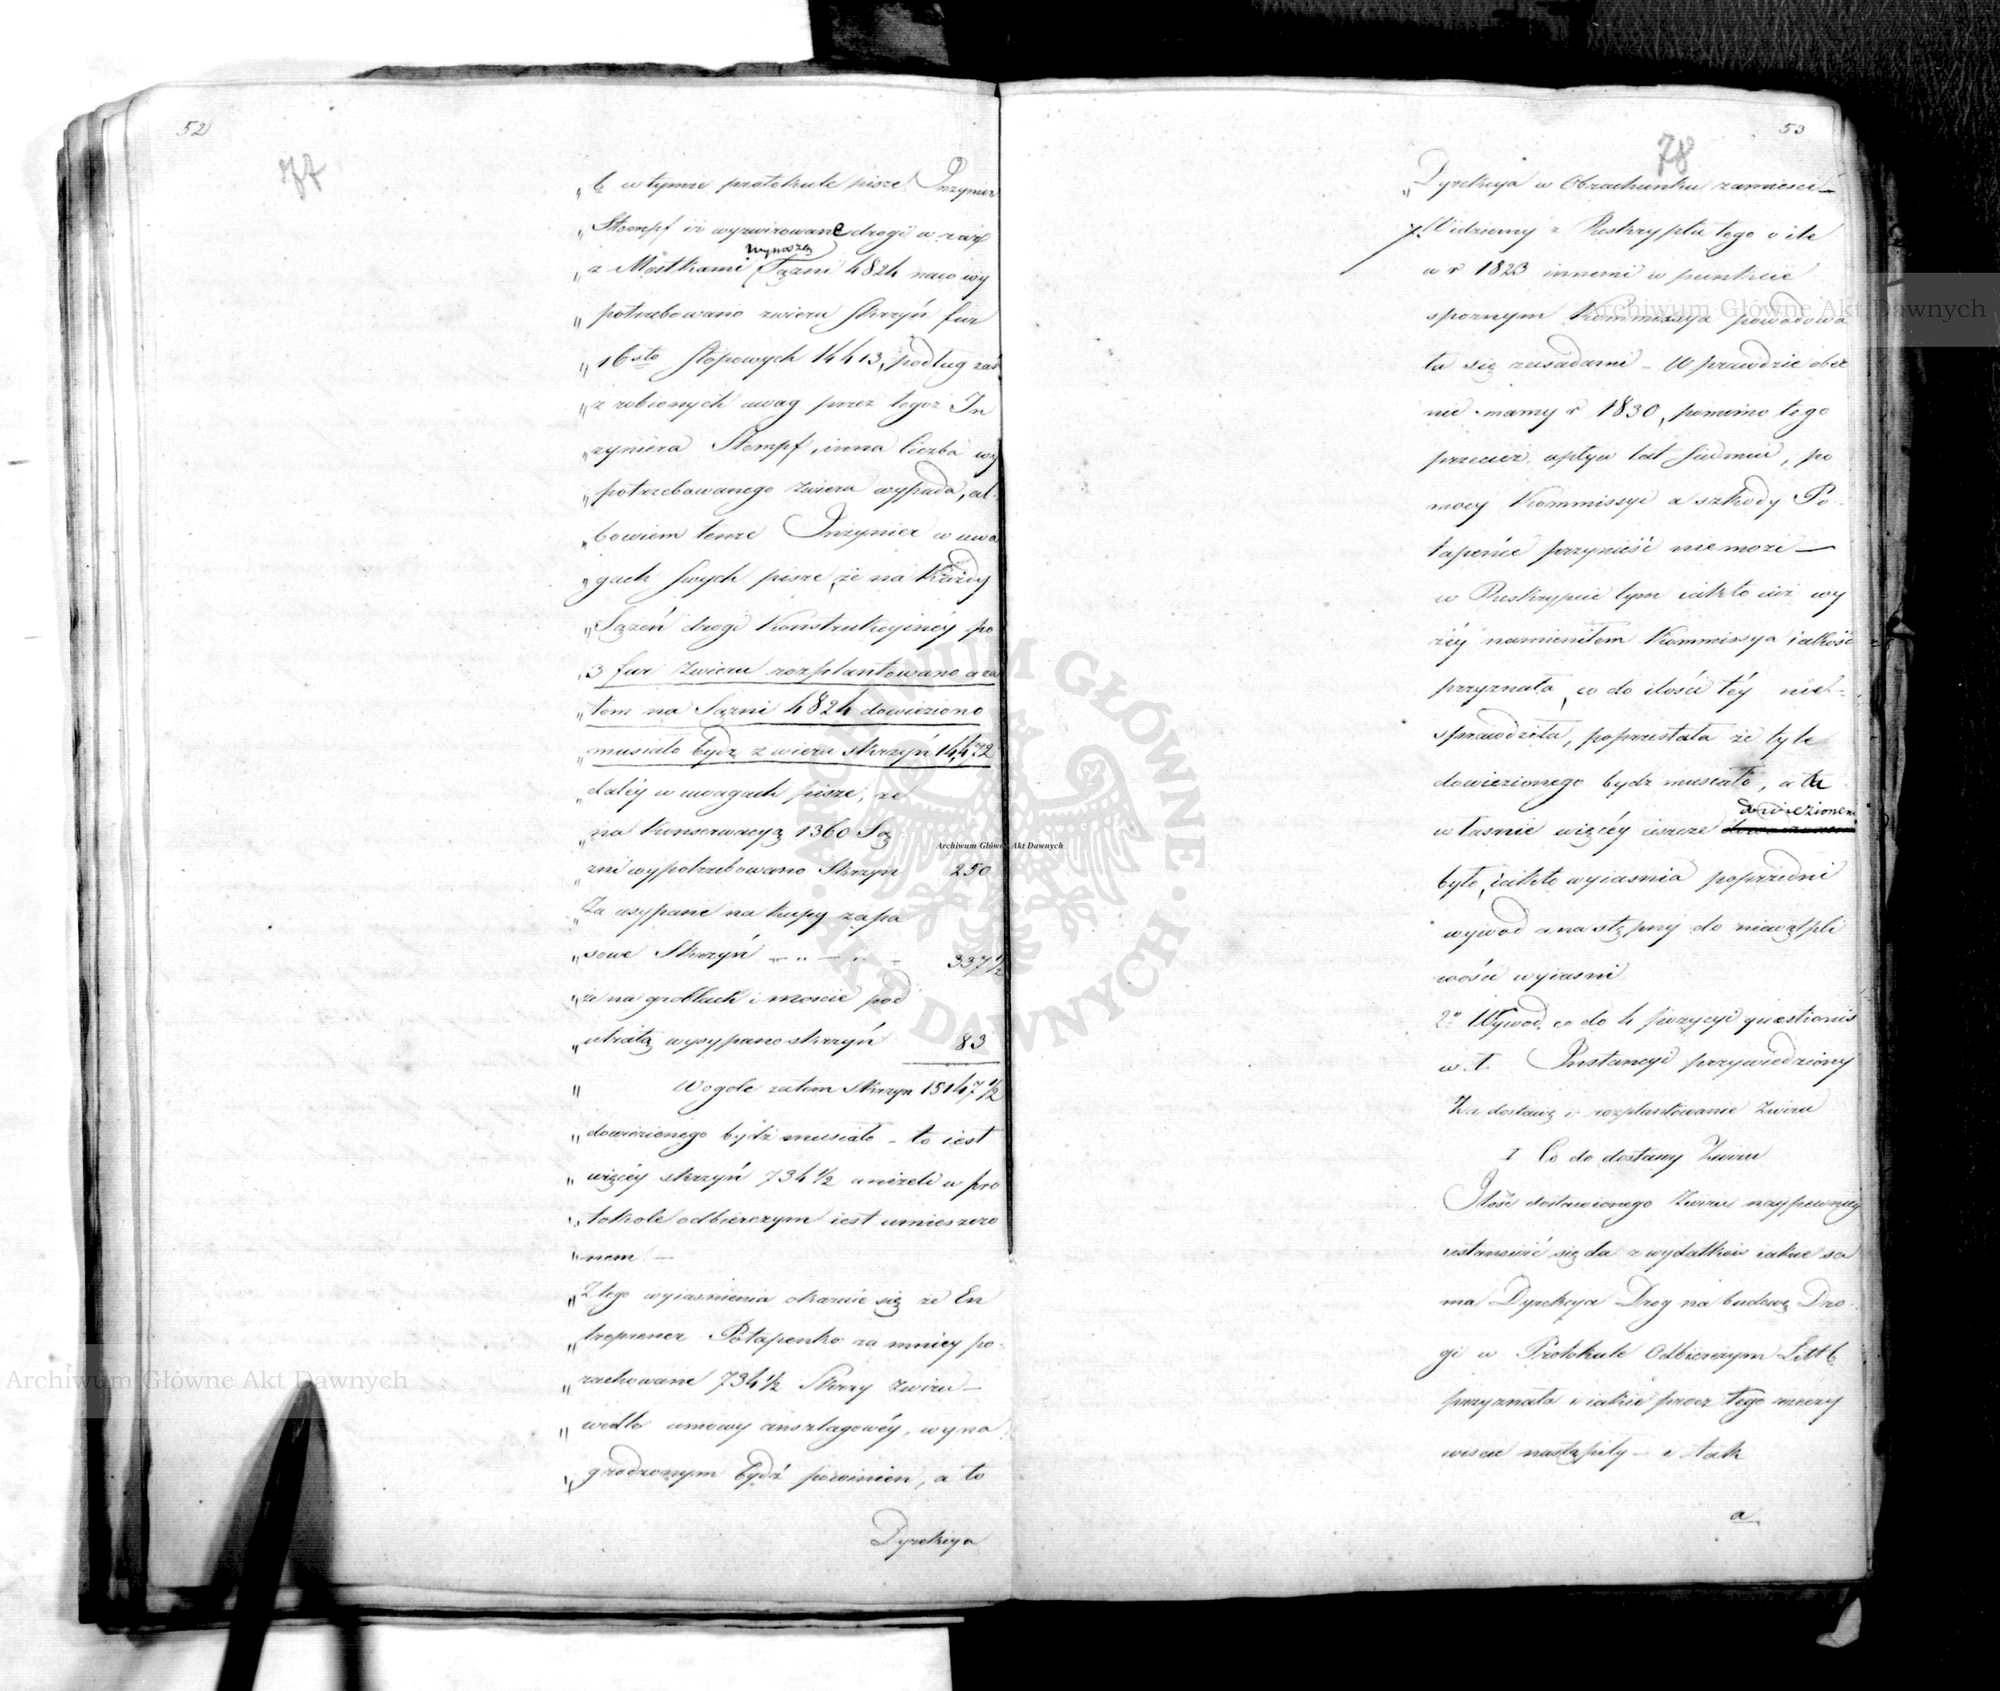 52
77
„ 6 w tymże protokule pisze Inżynier
„ Stompf iż wyżwirowane drogi w raz
wynoszą
„ z Mostkami Sążni 4824 na co wy
„ potrzebowano żwieru skrzyń fur
„ 16sto stopowych 14413, podług zaś
„ zrobionych uwag przez tegoż In
„ żyniera Stompf, inna liczba wy
„ potrzebowanego żwieru wypada, al-
„ bowiem tenże Inżynier w uwa
„ gach swych pisze, że na każdy
„ Sążeń drogi Konstrukcyinéy po
„ 3 fur żwieru rozplantowano a za
„ tem na Sążni 4824 dowieziono
„ musiało bydz żwieru skrzyń 14,472
„ daléy w uwagach pisze, że
„ na Konserwacyą 1360 Są
„ żni wypotrzebowano Skrzyń 250
„ Za usypane na kupy zapa
„ sowe Skrzyń 337 1/2
„ że na groblach i moście pod
„ utratą wysypano skrzyń 83
„ Wogole zatem Skrzyń 15147 1/2
„ dowiezionego bydź musiało - to iest
„ więcéy skrzyń 734 1/2 aniżeli w pro
„ tokole odbierczym iest umieszczo
„ nem —
„ Z tego wyiasnienia okazuie się że En
„ treprener Potapenko za mniey po-
„ rachowane 734 1/2 Skrzy żwiru —
„ wedle umowy anszlagowéy, wyna
„ grodzonym bydź powinien, a to
Dyrekcya
53
78
„ Dyrekcya w Obrachunku zamieści —
Widziemy z Reskryptu tego o ile
w r 1823 innemi w punkcie
spornym Kommissya powodowa
ła się zasadami - W prawdzie obec
nie mamy r 1830, pomimo tego
przecież upływ lat siedmiu, po
mocy Kommissyi a szkody Po-
tapeńce przynieść niemoże —
w Reskrypcie tym iakto iuż wy
żéy namieniłem Kommissya iakość
przyznała, co do ilości téy nie-
sprawdziła, poprzestała że tyle
dowiezionego bydz musiało, a tu
dowiezionem
właśnie więcéy ieszcze
było, iakto wyiasnia poprzedni
wywod a następny do niewątpli
wości wyiasni
2° Wywod co do 4 pozycyi quaestionis
w I. Instancyi przywiedziony
Za dostawę i rozplantowanie Żwiru
I Co do dostawy Żwiru
Ilość dostawionego Żwiru naypewniéy
ustanowić się da z wydatków iakie sa
ma Dyrekcya Drog na budowę Dro-
gi w Protokule Odbierczym Litt b.
przyznała i iakie przez tego rzeczy
wiscie nastąpiły — i tak
a
Archiwum Główne Akt Dawnych
Archiwum Główne Akt Dawnych
Archiwum Główne Akt Dawnych
ARCHIWUM GŁÓWNE · AKT DAWNYCH ·